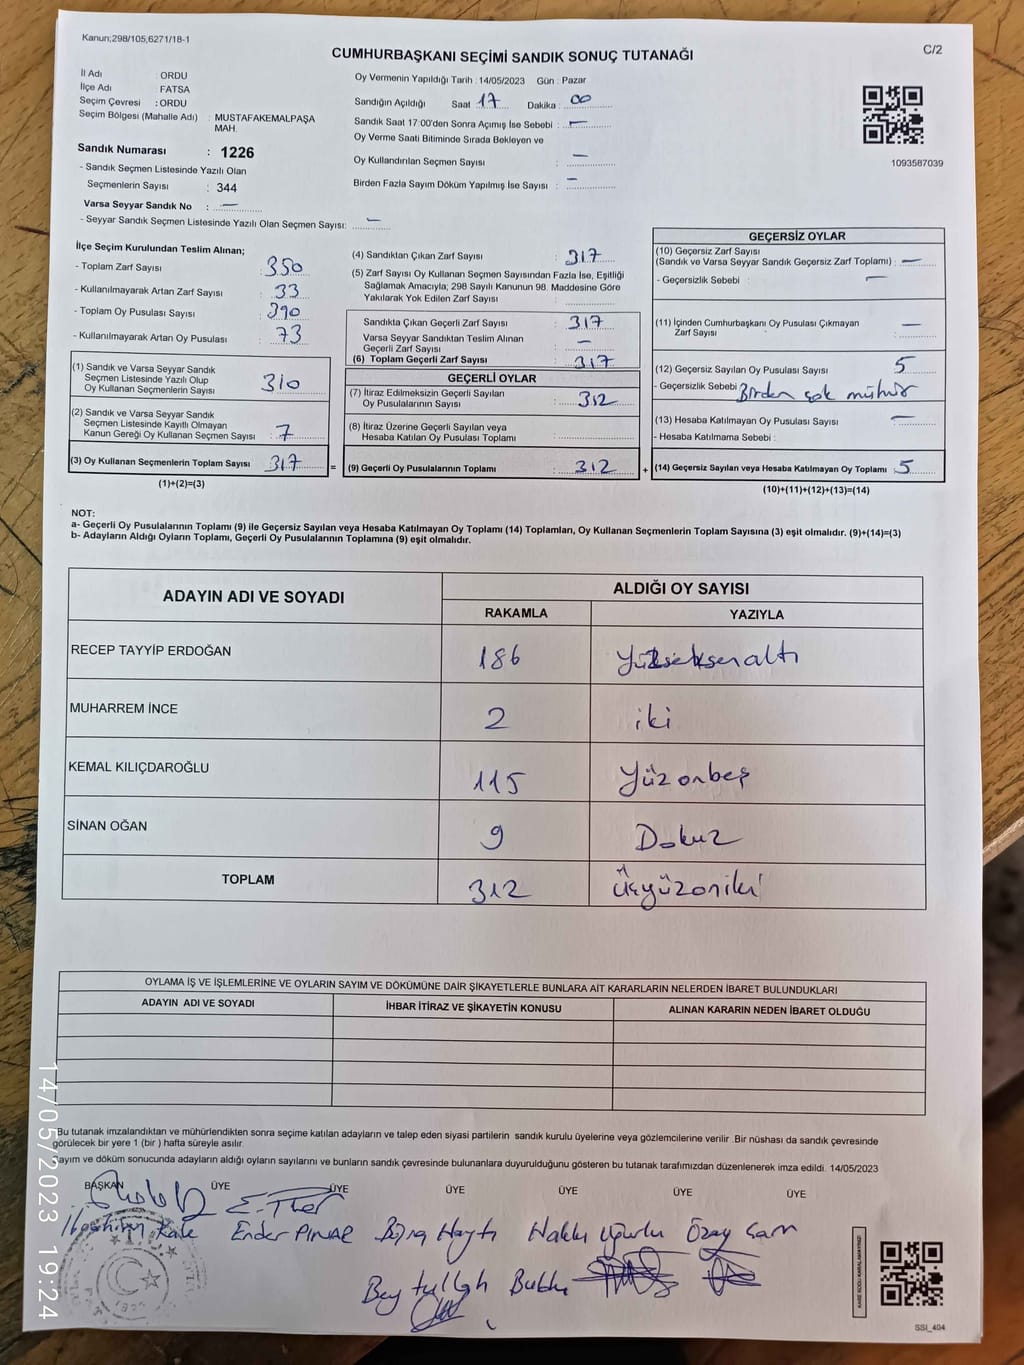 Kanun;298/105,6271/18-1
CUMHURBAŞKANI SEÇİMİ SANDIK SONUÇ TUTANAĞI
C/2
İl Adı : ORDU
İlçe Adı : FATSA
Seçim Çevresi : ORDU
Seçim Bölgesi (Mahalle Adı) : MUSTAFAKEMALPAŞA
MAH.
Sandık Numarası : 1226
- Sandık Seçmen Listesinde Yazılı Olan
Seçmenlerin Sayısı : 344
Varsa Seyyar Sandık No : —
- Seyyar Sandık Seçmen Listesinde Yazılı Olan Seçmen Sayısı: —
Oy Vermenin Yapıldığı Tarih : 14/05/2023 Gün : Pazar
Sandığın Açıldığı Saat 17 Dakika : 00
Sandık Saat 17:00'den Sonra Açımış İse Sebebi : —
Oy Verme Saati Bitiminde Sırada Bekleyen ve
Oy Kullandırılan Seçmen Sayısı : —
Birden Fazla Sayım Döküm Yapılmış İse Sayısı : —
1093587039
İlçe Seçim Kurulundan Teslim Alınan;
- Toplam Zarf Sayısı : 350
- Kullanılmayarak Artan Zarf Sayısı : 33
- Toplam Oy Pusulası Sayısı : 390
- Kullanılmayarak Artan Oy Pusulası : 73
(1) Sandık ve Varsa Seyyar Sandık
Seçmen Listesinde Yazılı Olup
Oy Kullanan Seçmenlerin Sayısı : 310
(2) Sandık ve Varsa Seyyar Sandık
Seçmen Listesinde Kayıtlı Olmayan
Kanun Gereği Oy Kullanan Seçmen Sayısı : 7
(3) Oy Kullanan Seçmenlerin Toplam Sayısı : 317
(1)+(2)=(3)
(4) Sandıktan Çıkan Zarf Sayısı : 317
(5) Zarf Sayısı Oy Kullanan Seçmen Sayısından Fazla İse, Eşitliği
Sağlamak Amacıyla; 298 Sayılı Kanunun 98. Maddesine Göre
Yakılarak Yok Edilen Zarf Sayısı :
Sandıkta Çıkan Geçerli Zarf Sayısı : 317
Varsa Seyyar Sandıktan Teslim Alınan
Geçerli Zarf Sayısı : —
(6) Toplam Geçerli Zarf Sayısı : 317
GEÇERLİ OYLAR
(7) İtiraz Edilmeksizin Geçerli Sayılan
Oy Pusulalarının Sayısı : 312
(8) İtiraz Üzerine Geçerli Sayılan veya
Hesaba Katılan Oy Pusulası Toplamı :
= (9) Geçerli Oy Pusulalarının Toplamı : 312 +
GEÇERSİZ OYLAR
(10) Geçersiz Zarf Sayısı
(Sandık ve Varsa Seyyar Sandık Geçersiz Zarf Toplamı) : —
- Geçersizlik Sebebi : —
(11) İçinden Cumhurbaşkanı Oy Pusulası Çıkmayan
Zarf Sayısı : —
(12) Geçersiz Sayılan Oy Pusulası Sayısı : 5
- Geçersizlik Sebebi : Birden çok mühür
(13) Hesaba Katılmayan Oy Pusulası Sayısı : —
- Hesaba Katılmama Sebebi :
(14) Geçersiz Sayılan veya Hesaba Katılmayan Oy Toplamı : 5
(10)+(11)+(12)+(13)=(14)
NOT:
a- Geçerli Oy Pusulalarının Toplamı (9) ile Geçersiz Sayılan veya Hesaba Katılmayan Oy Toplamı (14) Toplamları, Oy Kullanan Seçmenlerin Toplam Sayısına (3) eşit olmalıdır. (9)+(14)=(3)
b- Adayların Aldığı Oyların Toplamı, Geçerli Oy Pusulalarının Toplamına (9) eşit olmalıdır.
ADAYIN ADI VE SOYADI
ALDIĞI OY SAYISI
RAKAMLA YAZIYLA
RECEP TAYYİP ERDOĞAN 186 Yüzseksenaltı
MUHARREM İNCE 2 iki
KEMAL KILIÇDAROĞLU 115 Yüzonbeş
SİNAN OĞAN 9 Dokuz
TOPLAM 312 Üçyüzoniki
OYLAMA İŞ VE İŞLEMLERİNE VE OYLARIN SAYIM VE DÖKÜMÜNE DAİR ŞİKAYETLERLE BUNLARA AİT KARARLARIN NELERDEN İBARET BULUNDUKLARI
ADAYIN ADI VE SOYADI İHBAR İTİRAZ VE ŞİKAYETİN KONUSU ALINAN KARARIN NEDEN İBARET OLDUĞU
Bu tutanak imzalandıktan ve mühürlendikten sonra seçime katılan adayların ve talep eden siyasi partilerin sandık kurulu üyelerine veya gözlemcilerine verilir .Bir nüshası da sandık çevresinde
görülecek bir yere 1 (bir ) hafta süreyle asılır.
Sayım ve döküm sonucunda adayların aldığı oyların sayılarını ve bunların sandık çevresinde bulunanlara duyurulduğunu gösteren bu tutanak tarafımızdan düzenlenerek imza edildi. 14/05/2023
BAŞKAN ÜYE ÜYE ÜYE ÜYE ÜYE ÜYE
Kale Ender Hakkı Uğurlu Özay
14/05/2023 19:24
SSI_404